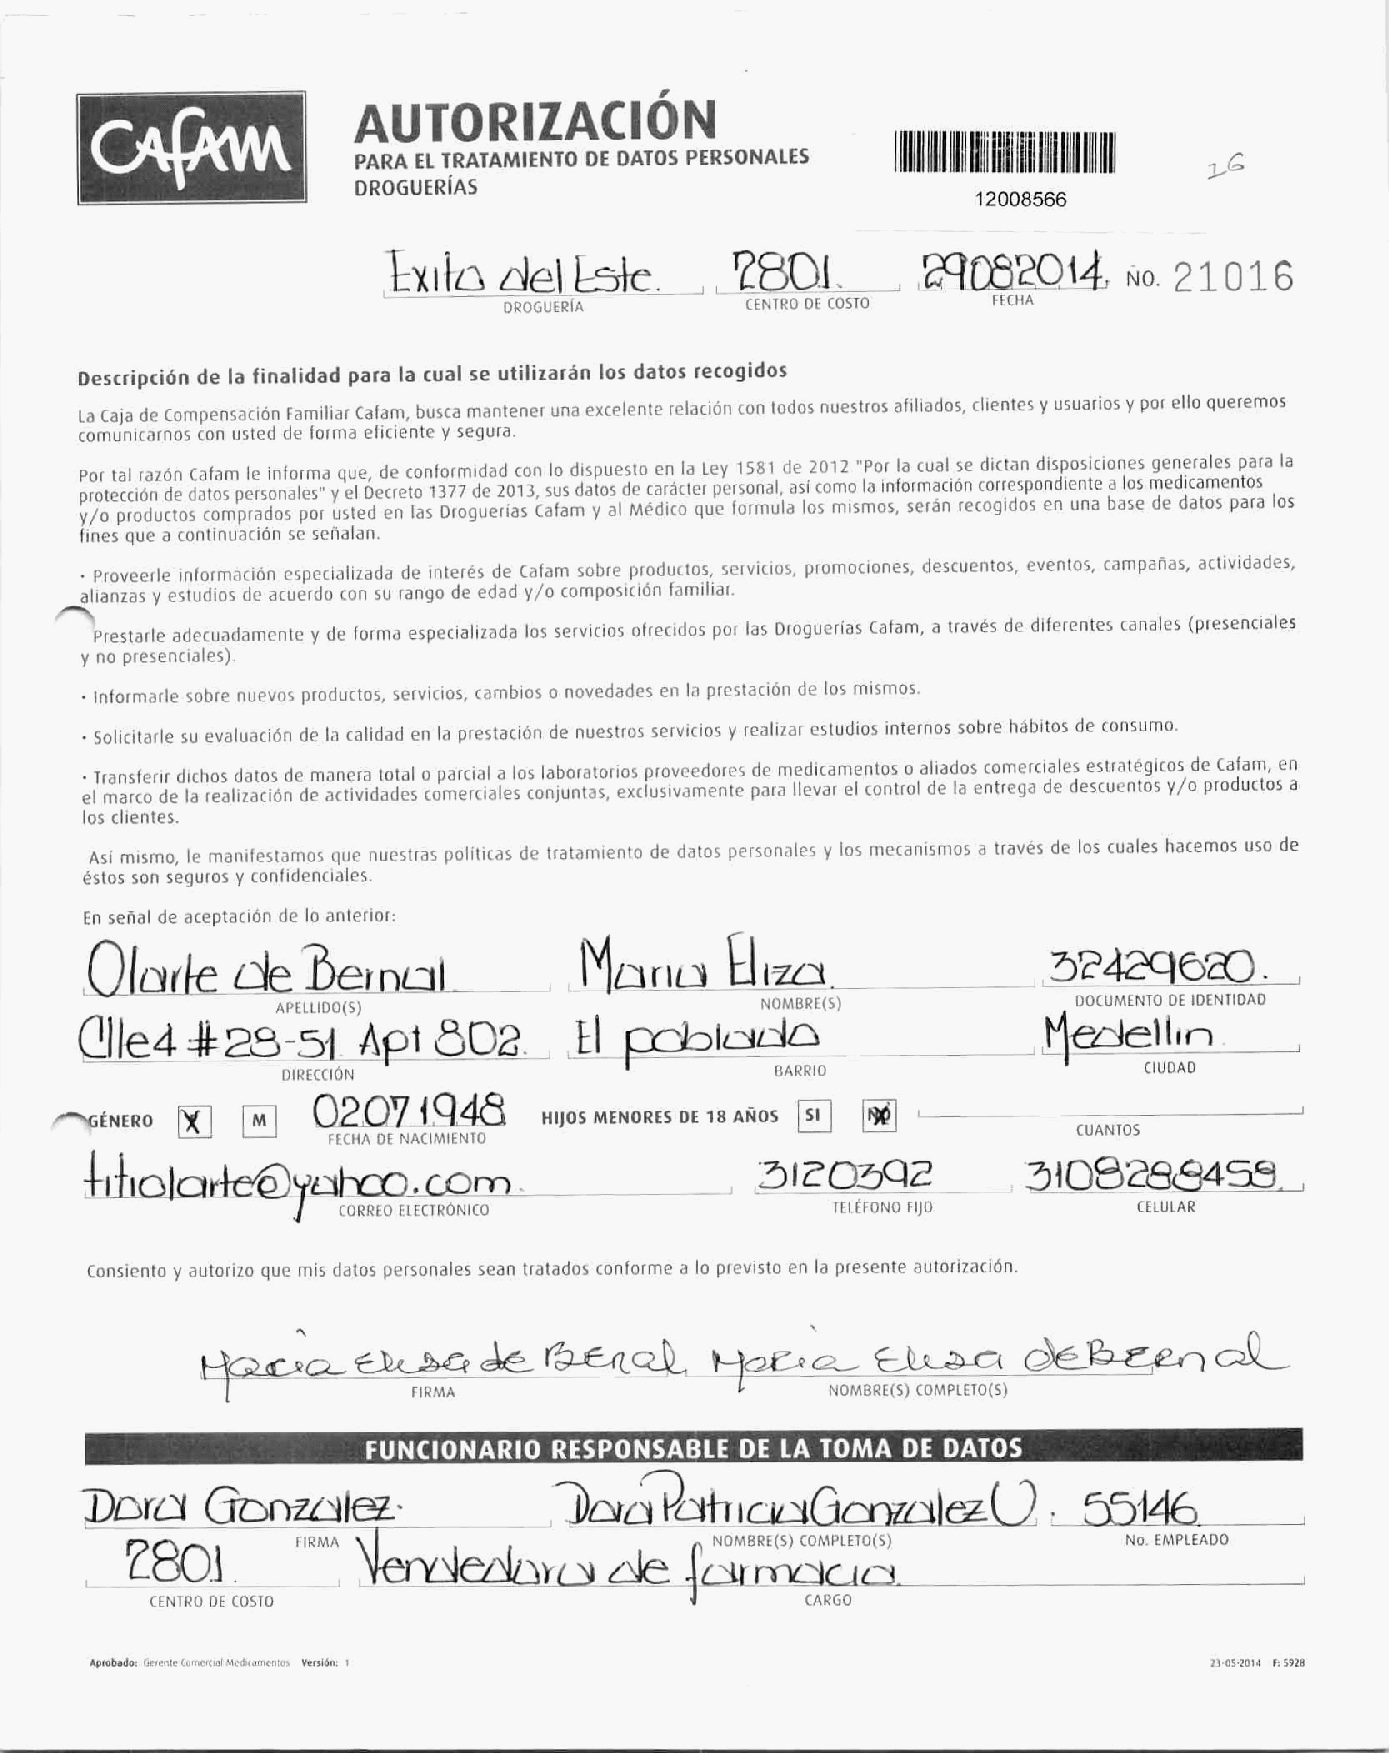 CAFAM
AUTORIZACIÓN
PARA EL TRATAMIENTO DE DATOS PERSONALES
DROGUERÍAS
12008566
26
Exito del Este. 2801. 29082014. NO. 21016
DROGUERÍA CENTRO DE COSTO FECHA
Descripción de la finalidad para la cual se utilizarán los datos recogidos
La Caja de Compensación Familiar Cafam, busca mantener una excelente relación con todos nuestros afiliados, clientes y usuarios y por ello queremos
comunicarnos con usted de forma eficiente y segura.
Por tal razón Cafam le informa que, de conformidad con lo dispuesto en la Ley 1581 de 2012 "Por la cual se dictan disposiciones generales para la
protección de datos personales" y el Decreto 1377 de 2013, sus datos de carácter personal, así como la información correspondiente a los medicamentos
y/o productos comprados por usted en las Droguerías Cafam y al Médico que formula los mismos, serán recogidos en una base de datos para los
fines que a continuación se señalan.
· Proveerle información especializada de interés de Cafam sobre productos, servicios, promociones, descuentos, eventos, campañas, actividades,
alianzas y estudios de acuerdo con su rango de edad y/o composición familiar.
Prestarle adecuadamente y de forma especializada los servicios ofrecidos por las Droguerías Cafam, a través de diferentes canales (presenciales
y no presenciales).
· Informarle sobre nuevos productos, servicios, cambios o novedades en la prestación de los mismos.
· Solicitarle su evaluación de la calidad en la prestación de nuestros servicios y realizar estudios internos sobre hábitos de consumo.
· Transferir dichos datos de manera total o parcial a los laboratorios proveedores de medicamentos o aliados comerciales estratégicos de Cafam, en
el marco de la realización de actividades comerciales conjuntas, exclusivamente para llevar el control de la entrega de descuentos y/o productos a
los clientes.
Así mismo, le manifestamos que nuestras políticas de tratamiento de datos personales y los mecanismos a través de los cuales hacemos uso de
éstos son seguros y confidenciales.
En señal de aceptación de lo anterior:
Olarte de Bernal Maria Eliza 32429620.
APELLIDO(S) NOMBRE(S) DOCUMENTO DE IDENTIDAD
Clle4 #28-51 Apt 802. El poblado Medellin.
DIRECCIÓN BARRIO CIUDAD
GÉNERO X M 02071948 HIJOS MENORES DE 18 AÑOS SI NO
FECHA DE NACIMIENTO CUANTOS
titiolarte@yahoo.com. 3120392 3108288459.
CORREO ELECTRÓNICO TELÉFONO FIJO CELULAR
Consiento y autorizo que mis datos personales sean tratados conforme a lo previsto en la presente autorización.
Maria Elisa de Beral Maria Elisa de Beernal
FIRMA NOMBRE(S) COMPLETO(S)
FUNCIONARIO RESPONSABLE DE LA TOMA DE DATOS
Dora Gonzalez. Dora Patricia Gonzalez U. 55146
FIRMA NOMBRE(S) COMPLETO(S) No. EMPLEADO
2801. Vendedora de farmacia.
CENTRO DE COSTO CARGO
Aprobado: Gerente Comercial Medicamentos Versión: 1 23-05-2014 F: 5928